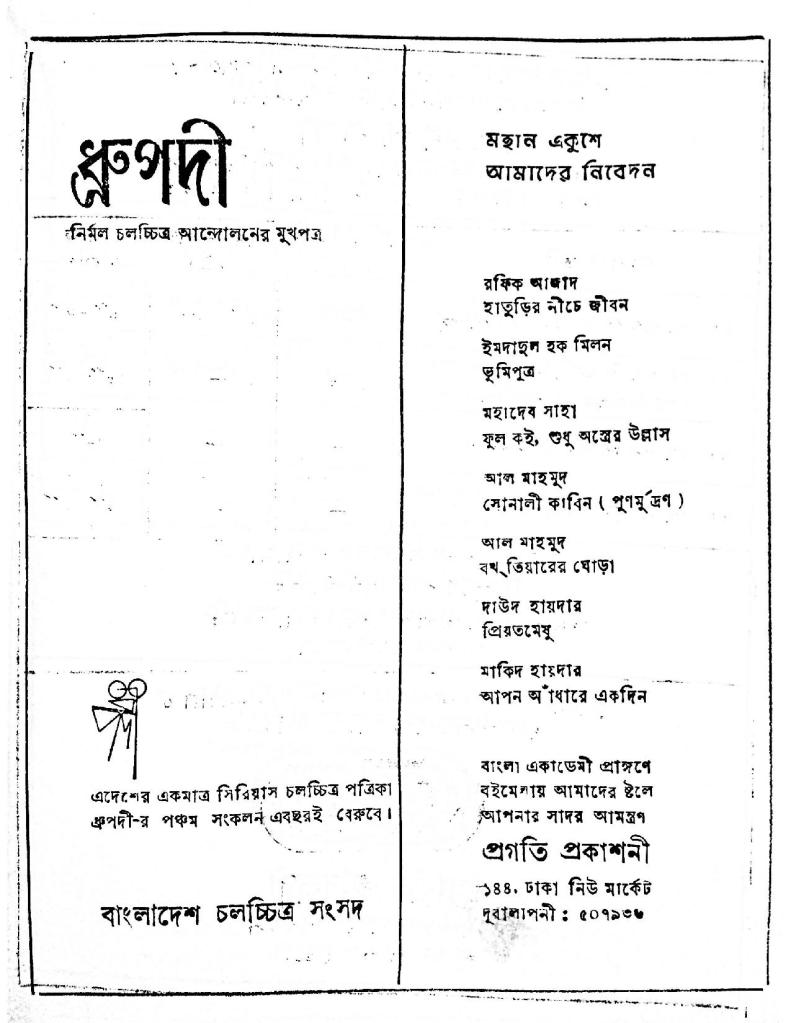 ধ্রুপদী
নির্মল চলচ্চিত্র আন্দোলনের মুখপত্র
এদেশের একমাত্র সিরিয়াস চলচ্চিত্র পত্রিকা
ধ্রুপদী-র পঞ্চম সংকলন এবছরই বেরুবে।
বাংলাদেশ চলচ্চিত্র সংসদ
মহান একুশে
আমাদের নিবেদন
রফিক আজাদ
হাতুড়ির নীচে জীবন
ইমদাদুল হক মিলন
ভূমিপুত্র
মহাদেব সাহা
ফুল কই, শুধু অস্ত্রের উল্লাস
আল মাহমুদ
সোনালী কাবিন ( পুণর্মুদ্রণ )
আল মাহমুদ
বখ্‌তিয়ারের ঘোড়া
দাউদ হায়দার
প্রিয়তমেষু
মাকিদ হায়দার
আপন আঁধারে একদিন
বাংলা একাডেমী প্রাঙ্গণে
বইমেলায় আমাদের ষ্টলে
আপনার সাদর আমন্ত্রণ
প্রগতি প্রকাশনী
১৪৪, ঢাকা নিউ মার্কেট
দূরালাপনী : ৫০৭৯৩৬